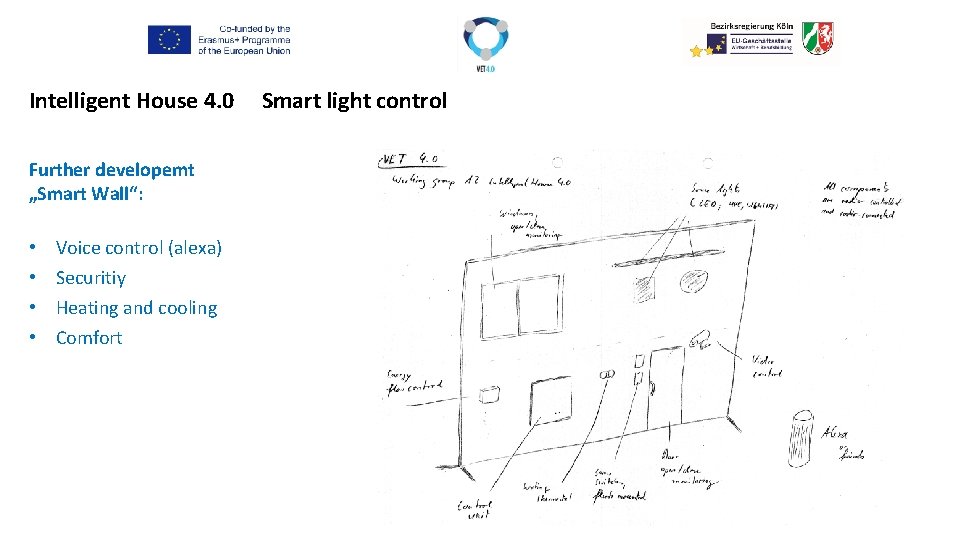 Co-funded by the
Erasmus+ Programme
of the European Union
VET4.0
Bezirksregierung Köln
EU-Geschäftsstelle
Wirtschaft + Berufsbildung
Intelligent House 4.0 Smart light control
Further developemt
„Smart Wall“:
• Voice control (alexa)
• Securitiy
• Heating and cooling
• Comfort
VET 4.0
Working group 12 Intelligent House 4.0
Some lights
(LED,
All components
are radio controlled
and radio-connected
Windows,
open/close
monitoring
Energy
flow control
Video
control
Alexa
or
friends
Control
unit
thermostat
Some
switches,
Door
open/close
monitoring